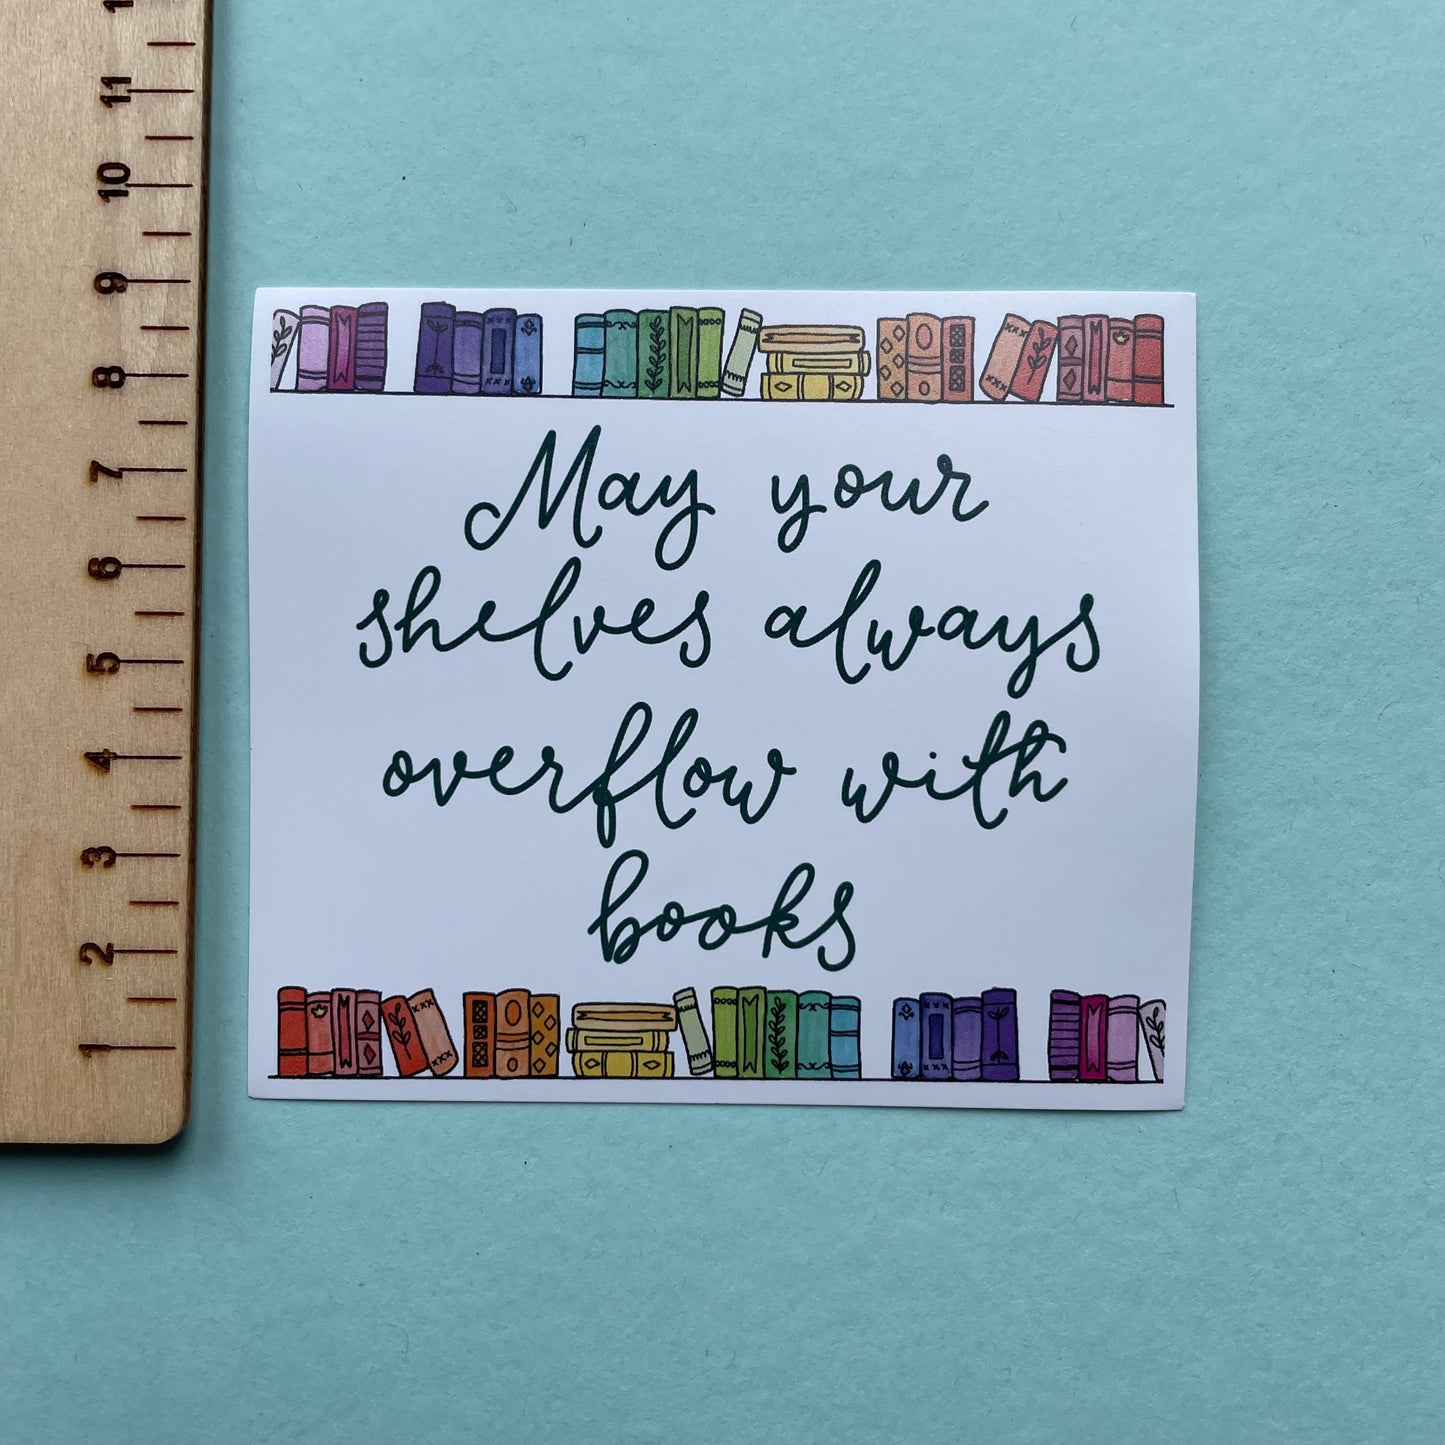 11
10
9
8
7
6
5
4
3
2
1
May your
shelves always
overflow with
books